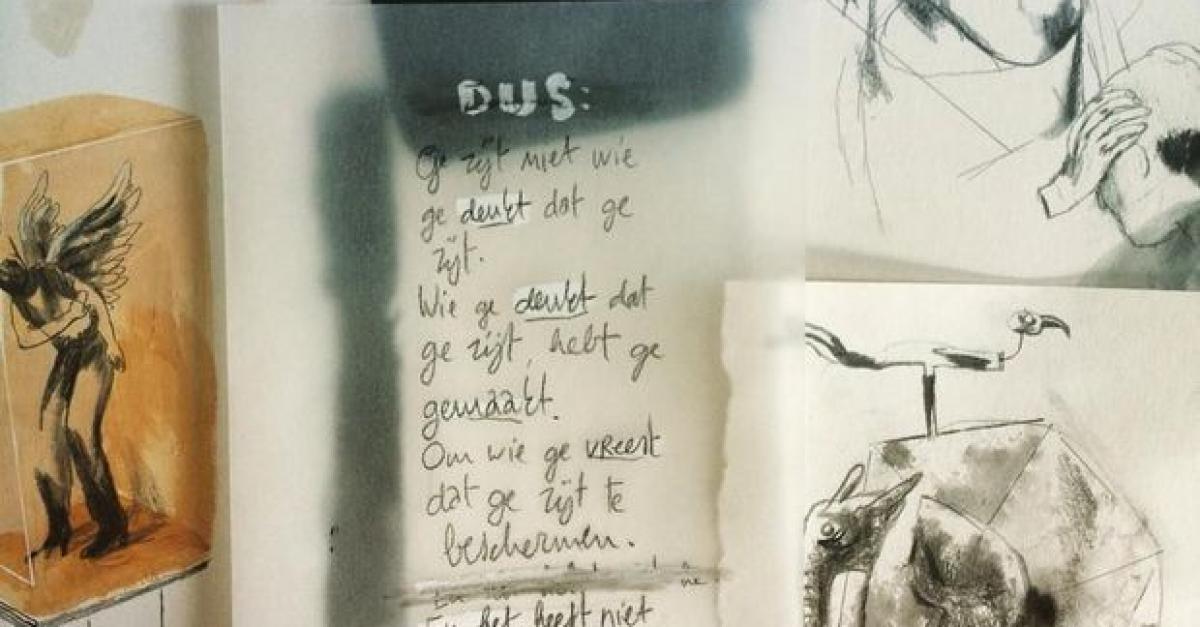 DUS:
Ge zijt niet wie
ge denkt dat ge
zijt.
Wie ge denkt dat
ge zijt, hebt ge
gemaakt.
Om wie ge vreest
dat ge zijt te
beschermen.
ne
En het heeft niet